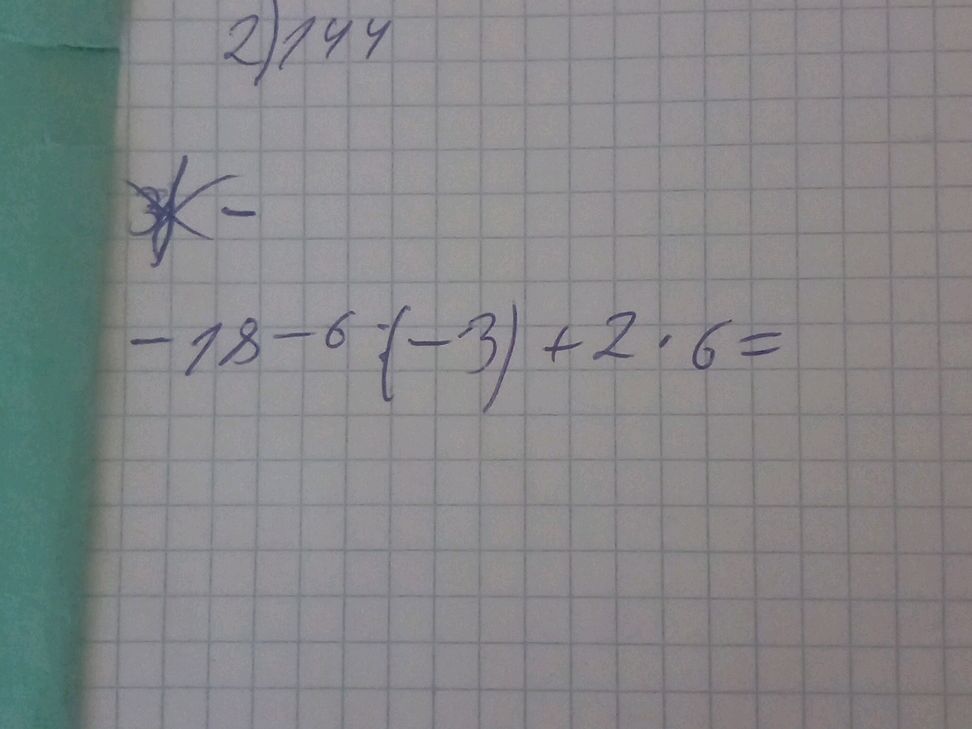 2) 144
-
-18-6·(-3)+2·6=